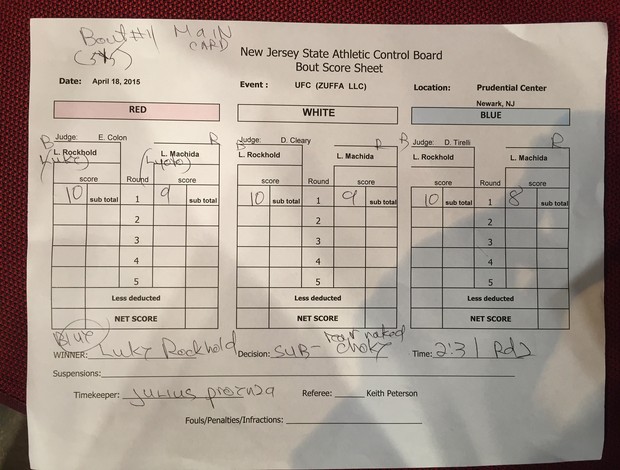 Bout #11 MAIN CARD
(5x5)
New Jersey State Athletic Control Board
Bout Score Sheet
Date: April 18, 2015 Event : UFC (ZUFFA LLC) Location: Prudential Center
Newark, NJ
RED WHITE BLUE
B Judge: E. Colon R B Judge: D. Cleary R B Judge: D. Tirelli R
L. Rockhold L. Machida L. Rockhold L. Machida L. Rockhold L. Machida
(Luke) (Lyoto)
score Round score score Round score score Round score
10 sub total 1 9 sub total 10 sub total 1 9 sub total 10 sub total 1 8 sub total
2 2 2
3 3 3
4 4 4
5 5 5
Less deducted Less deducted Less deducted
NET SCORE NET SCORE NET SCORE
Blue
WINNER: Luke Rockhold Decision: SUB- rear naked choke Time: 2:31 Rd2
Suspensions:
Timekeeper: Julius Referee: Keith Peterson
Fouls/Penalties/Infractions: